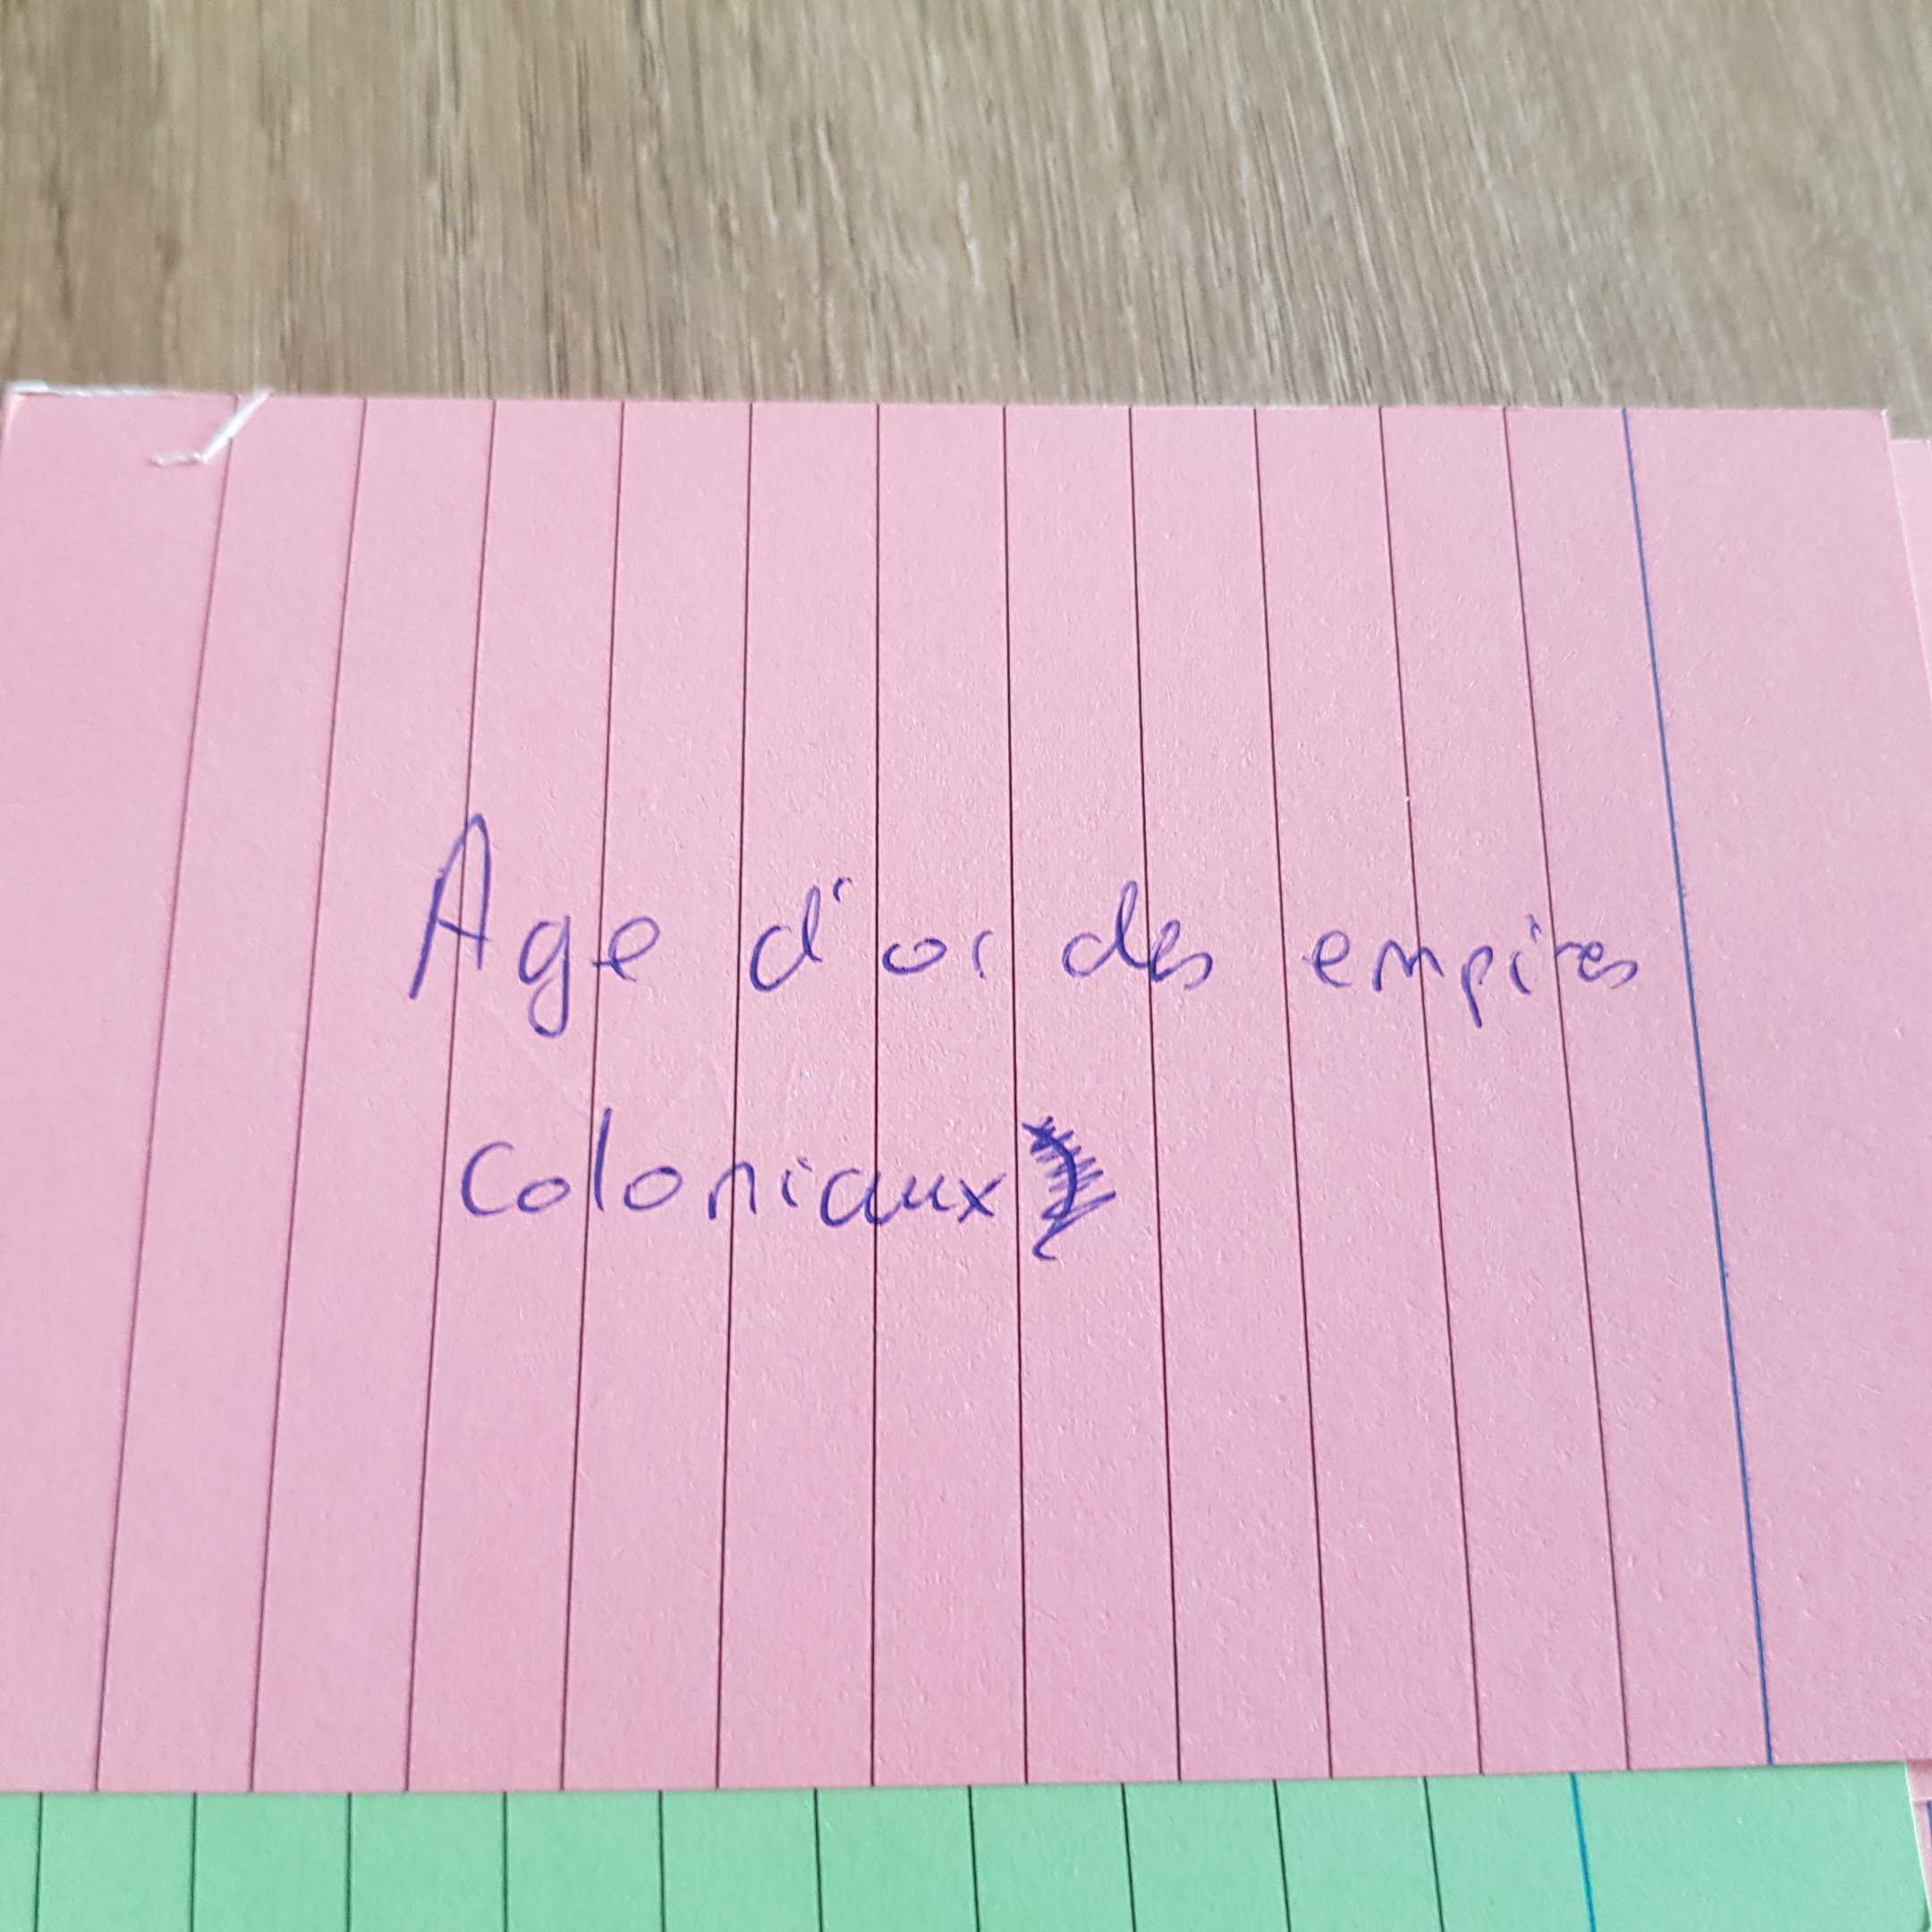 Age d'or des empires
coloniaux